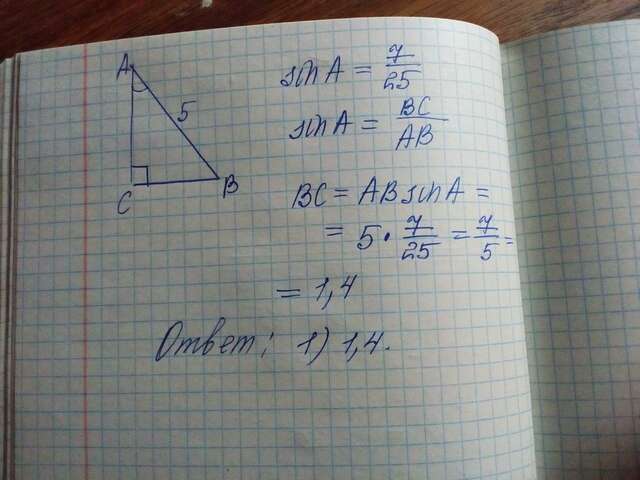 A
5
C
B
sin A = 7/25
sin A = BC/AB
BC = AB sin A =
= 5 · 7/25 = 7/5 =
= 1,4
Ответ: 1) 1,4.